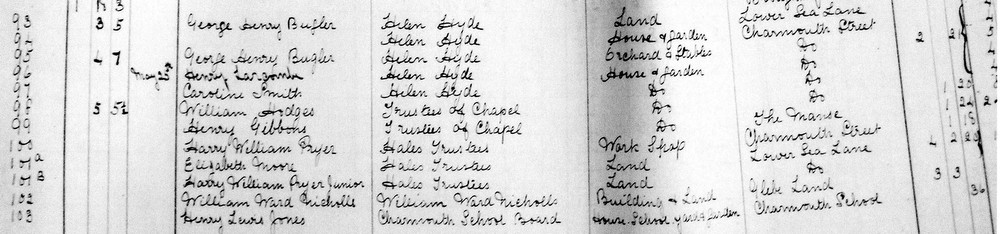 1 R 3
93 3 5 George Henry Bugler Helen Hyde Land Lower Sea Lane
94 Helen Hyde House & Garden Charmouth Street
95 4 7 George Henry Bugler Helen Hyde Orchard & Stables Do
96 May 25th Henry Helen Hyde House & Garden Do
97 Caroline Smith Helen Hyde Do Do
98 5 5½ William Hodges Trustees of Chapel Do Do
99 Henry Gibbons Trustees of Chapel Do The Manse
100 Harry William Pryer Hales Trustees Work Shop Charmouth Street
101A Elizabeth Moore Hales Trustees Land Lower Sea Lane
101B Harry William Pryer Junior Hales Trustees Land Do
102 William Ward Nicholls William Ward Nicholls Building & Land Glebe Land
103 Henry Lewis Jones Charmouth School Board House School Yard & Garden Charmouth School